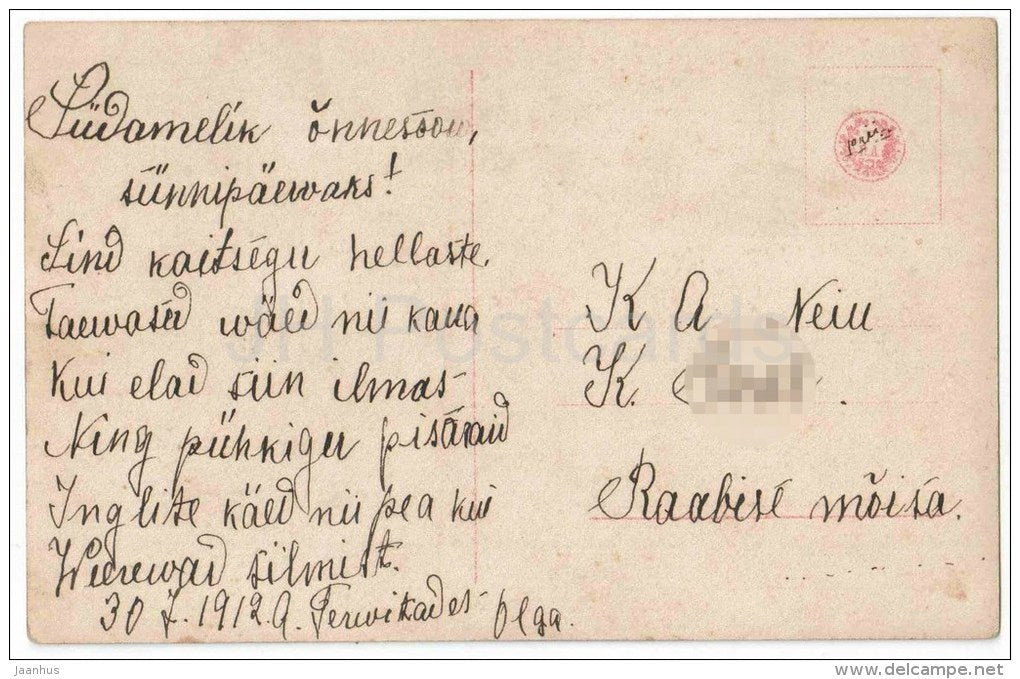 Südamelik õnnesoow,
sünnipäewaks!
Sind kaitsegu hellaste.
Taewased wäed nii kaua
Kui elad siin ilmas
Ning pühkigu pisaraid
Inglite käed nii pea kui
Weerewad silmist.
30 7. 1912. a. Terwitades Olga.
K A Neiu
K.
Raabise mõisa.
JH Postcards
jaanhus
www.delcampe.net